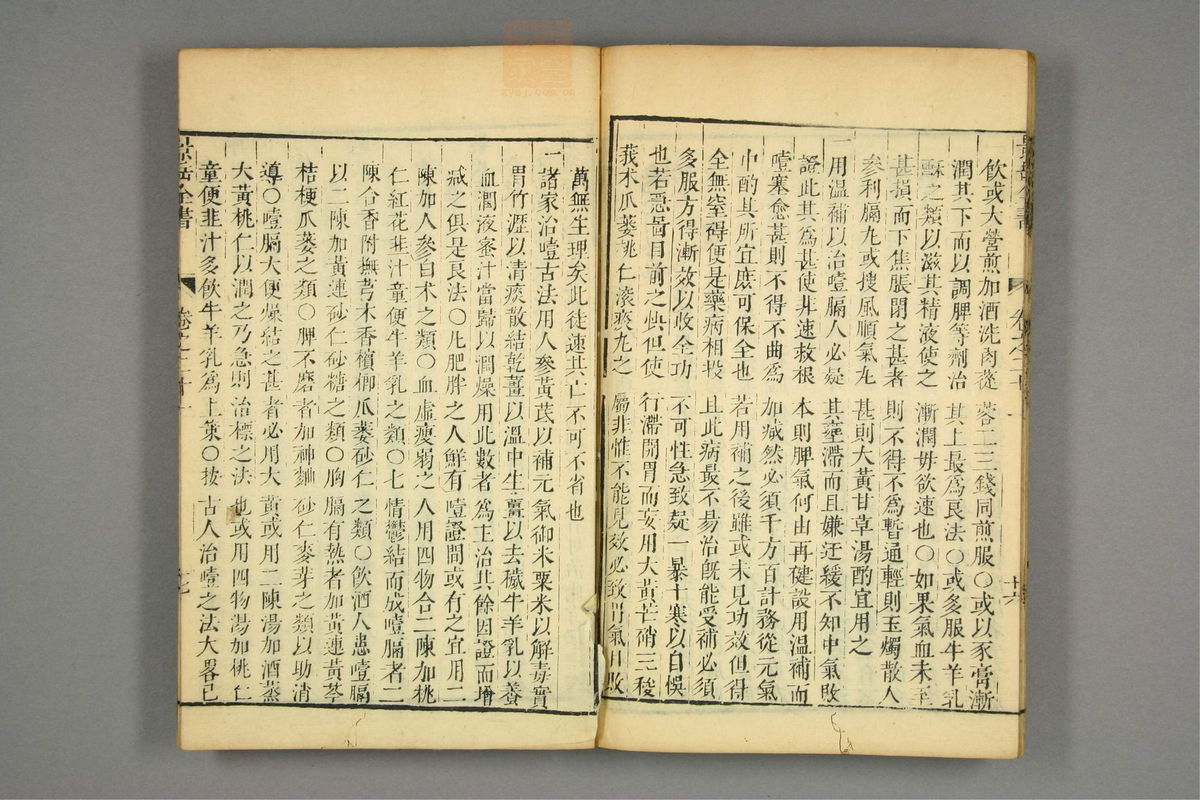 飲或大營煎加酒洗肉蓯蓉二三錢同煎服〇或以豕膏漸
潤其下而以調脾等劑治其上最爲良法〇或多服牛羊乳
酥之類以滋其精液使之漸潤毋欲速也〇如果氣血未至
甚損而下焦脹閉之甚者則不得不爲暫通輕則玉燭散人
參利膈丸或搜風順氣丸甚則大黃甘草湯酌宜用之
一用溫補以治噎膈人必疑其壅滯而且嫌迂緩不知中氣敗
證此其爲甚使非速救根本則脾氣何由再健設用溫補而
噎塞愈甚則不得不曲爲加減然必須千方百計務從元氣
中酌其所宜庶可保全也若用補之後雖或未見功效但得
全無窒礙便是藥病相投且此病最不易治旣能受補必須
多服方得漸效以收全功不可性急致疑一暴十寒以自悞
也若急圖目前之快但使行滯開胃而妄用大黃芒硝三稜
莪朮瓜蔞桃仁滾痰丸之屬非惟不能見效必致胃氣日敗
萬無生理矣此徒速其亡不可不省也
一諸家治噎古法用人參黃芪以補元氣御米粟米以解毒實
胃竹瀝以清痰散結乾薑以溫中生薑以去穢牛羊乳以養
血潤液蜜汁當歸以潤燥用此數者爲主治其餘因證而增
減之俱是良法〇凡肥胖之人鮮有噎證間或有之宜用二
陳加人參白朮之類〇血虛瘦弱之人用四物合二陳加桃
仁紅花韭汁童便牛羊乳之類〇七情鬱結而成噎膈者二
陳合香附撫芎木香檳榔瓜蔞砂仁之類〇飲酒人患噎膈
以二陳加黃連砂仁砂糖之類〇胸膈有熱者加黃連黃芩
桔梗瓜蔞之類〇脾不磨者加神麯砂仁麥芽之類以助消
導〇噎膈大便燥結之甚者必用大黃或用二陳湯加酒蒸
大黃桃仁以潤之乃急則治標之法也或用四物湯加桃仁
童便韭汁多飲牛羊乳爲上策〇按古人治噎之法大畧已